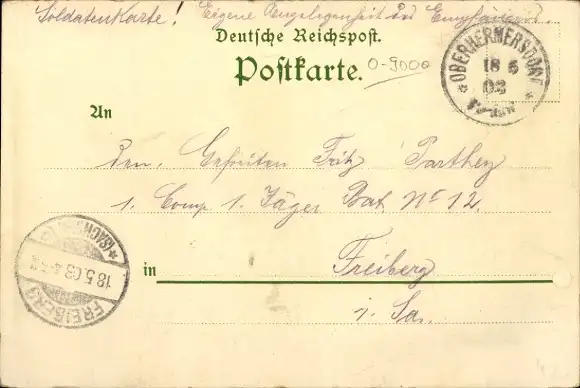 Soldatenkarte! Eigene Angelegenheit des Empfängers.
Deutsche Reichspost.
Postkarte.
0-9000
OBERHERMERSDORF
18 5
03
An
den Gefreiten Fritz Parthey
1. Comp 1. Jäger Bat. No 12.
in Freiberg
i. Sa.
FREIBERG
18.5.03
(SACHSEN)